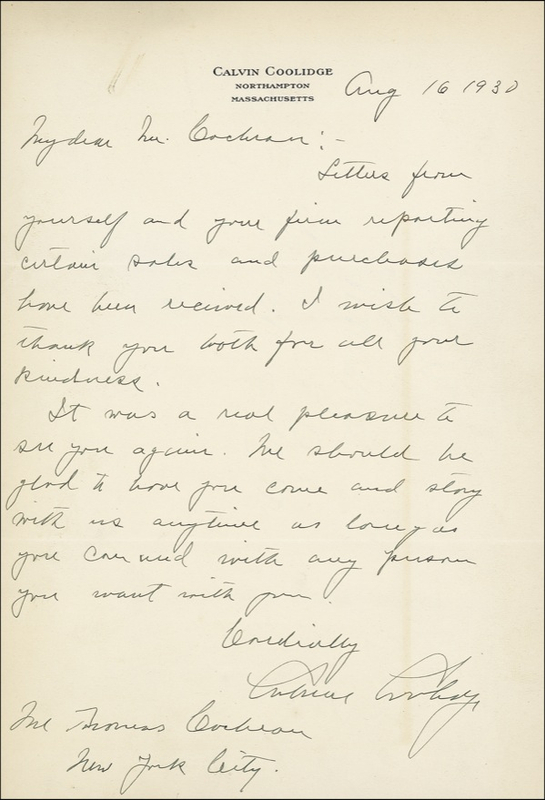 CALVIN COOLIDGE
NORTHAMPTON
MASSACHUSETTS
Aug 16 1930
My dear Mr. Cochran:-
Letters from
yourself and your firm reporting
certain sales and purchases
have been received. I wish to
thank you both for all your
kindness.
It was a real pleasure to
see you again. We should be
glad to have you come and stay
with us anytime as long as
you can and with any person
you want with you.
Cordially
Calvin Coolidge
Mr Thomas Cochran
New York City.